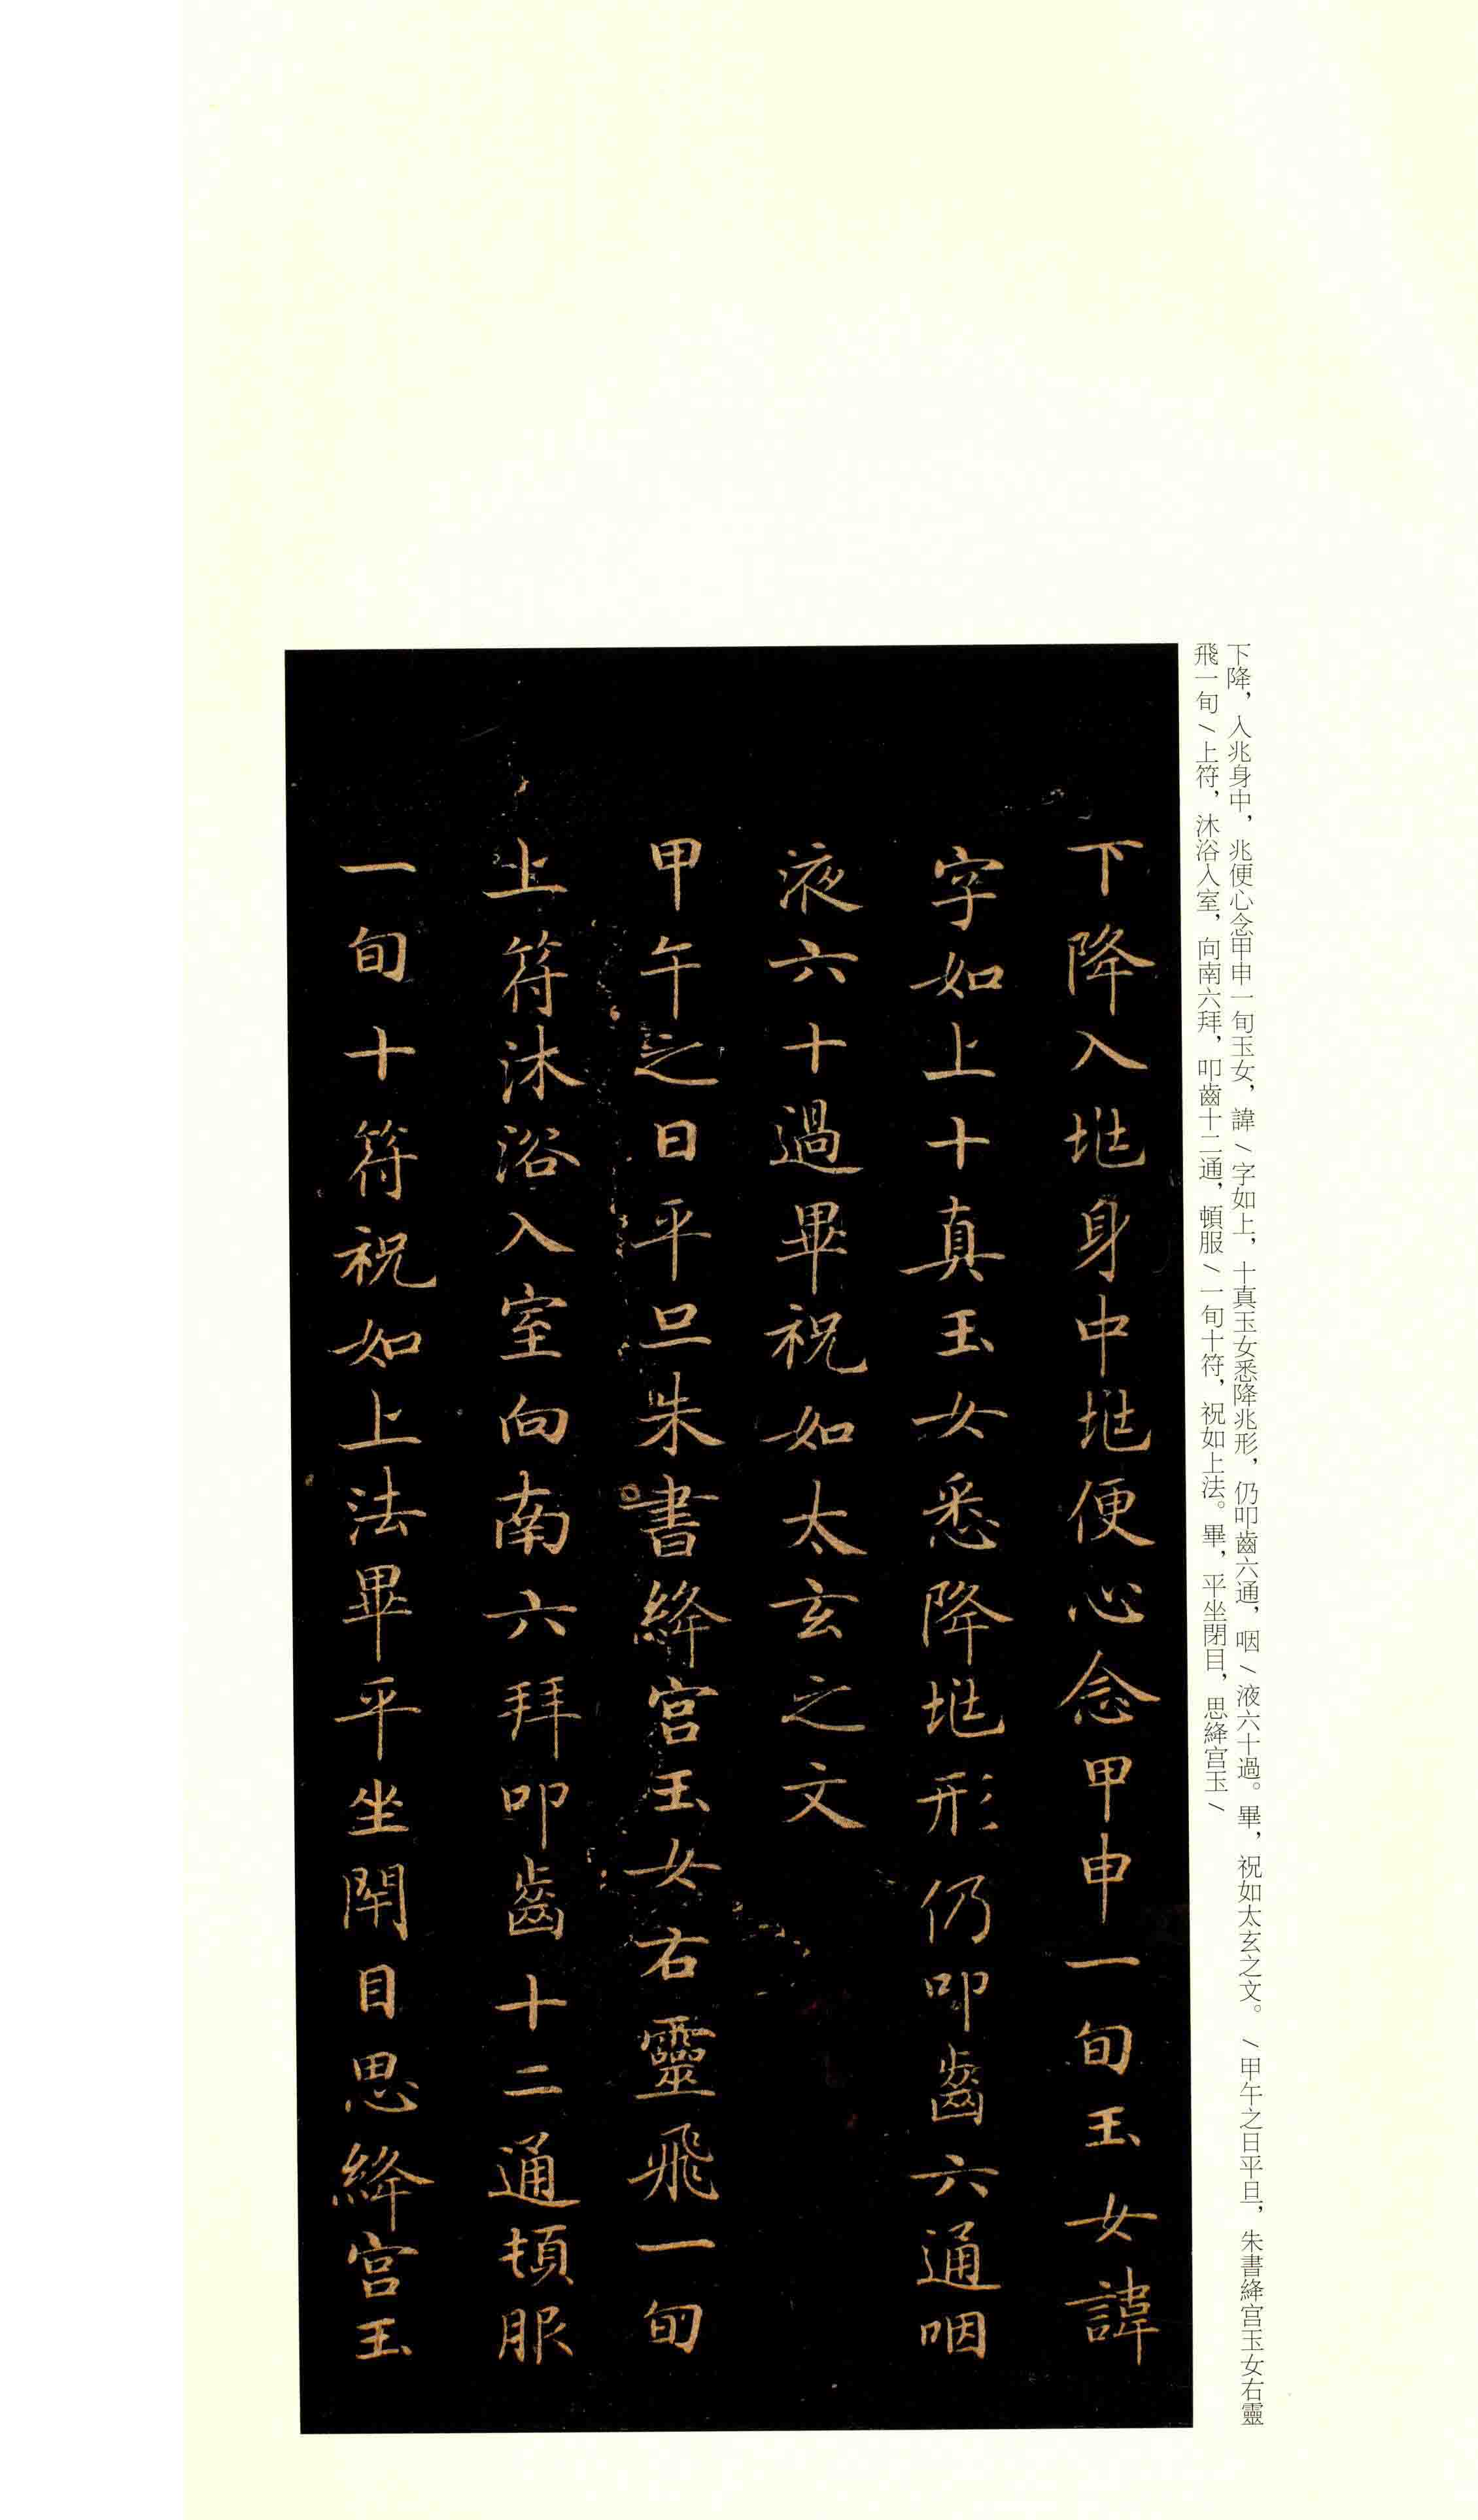 下降，入兆身中，兆便心念甲申一旬玉女，諱／字如上，十真玉女悉降兆形，仍叩齒六通，咽／液六十過。畢，祝如太玄之文。／甲午之日平旦，朱書絳宫玉女右靈
飛一旬／上符，沐浴入室，向南六拜，叩齒十二通，頓服／一旬十符，祝如上法。畢，平坐閉目，思絳宫玉／
下降入垗身中垗便心念甲申一旬玉女諱
字如上十真玉女悉降垗形仍叩齒六通咽
液六十過畢祝如太玄之文
甲午之日平旦朱書絳宫玉女右靈飛一旬
上符沐浴入室向南六拜叩齒十二通頓服
一旬十符祝如上法畢平坐閇目思絳宫玉